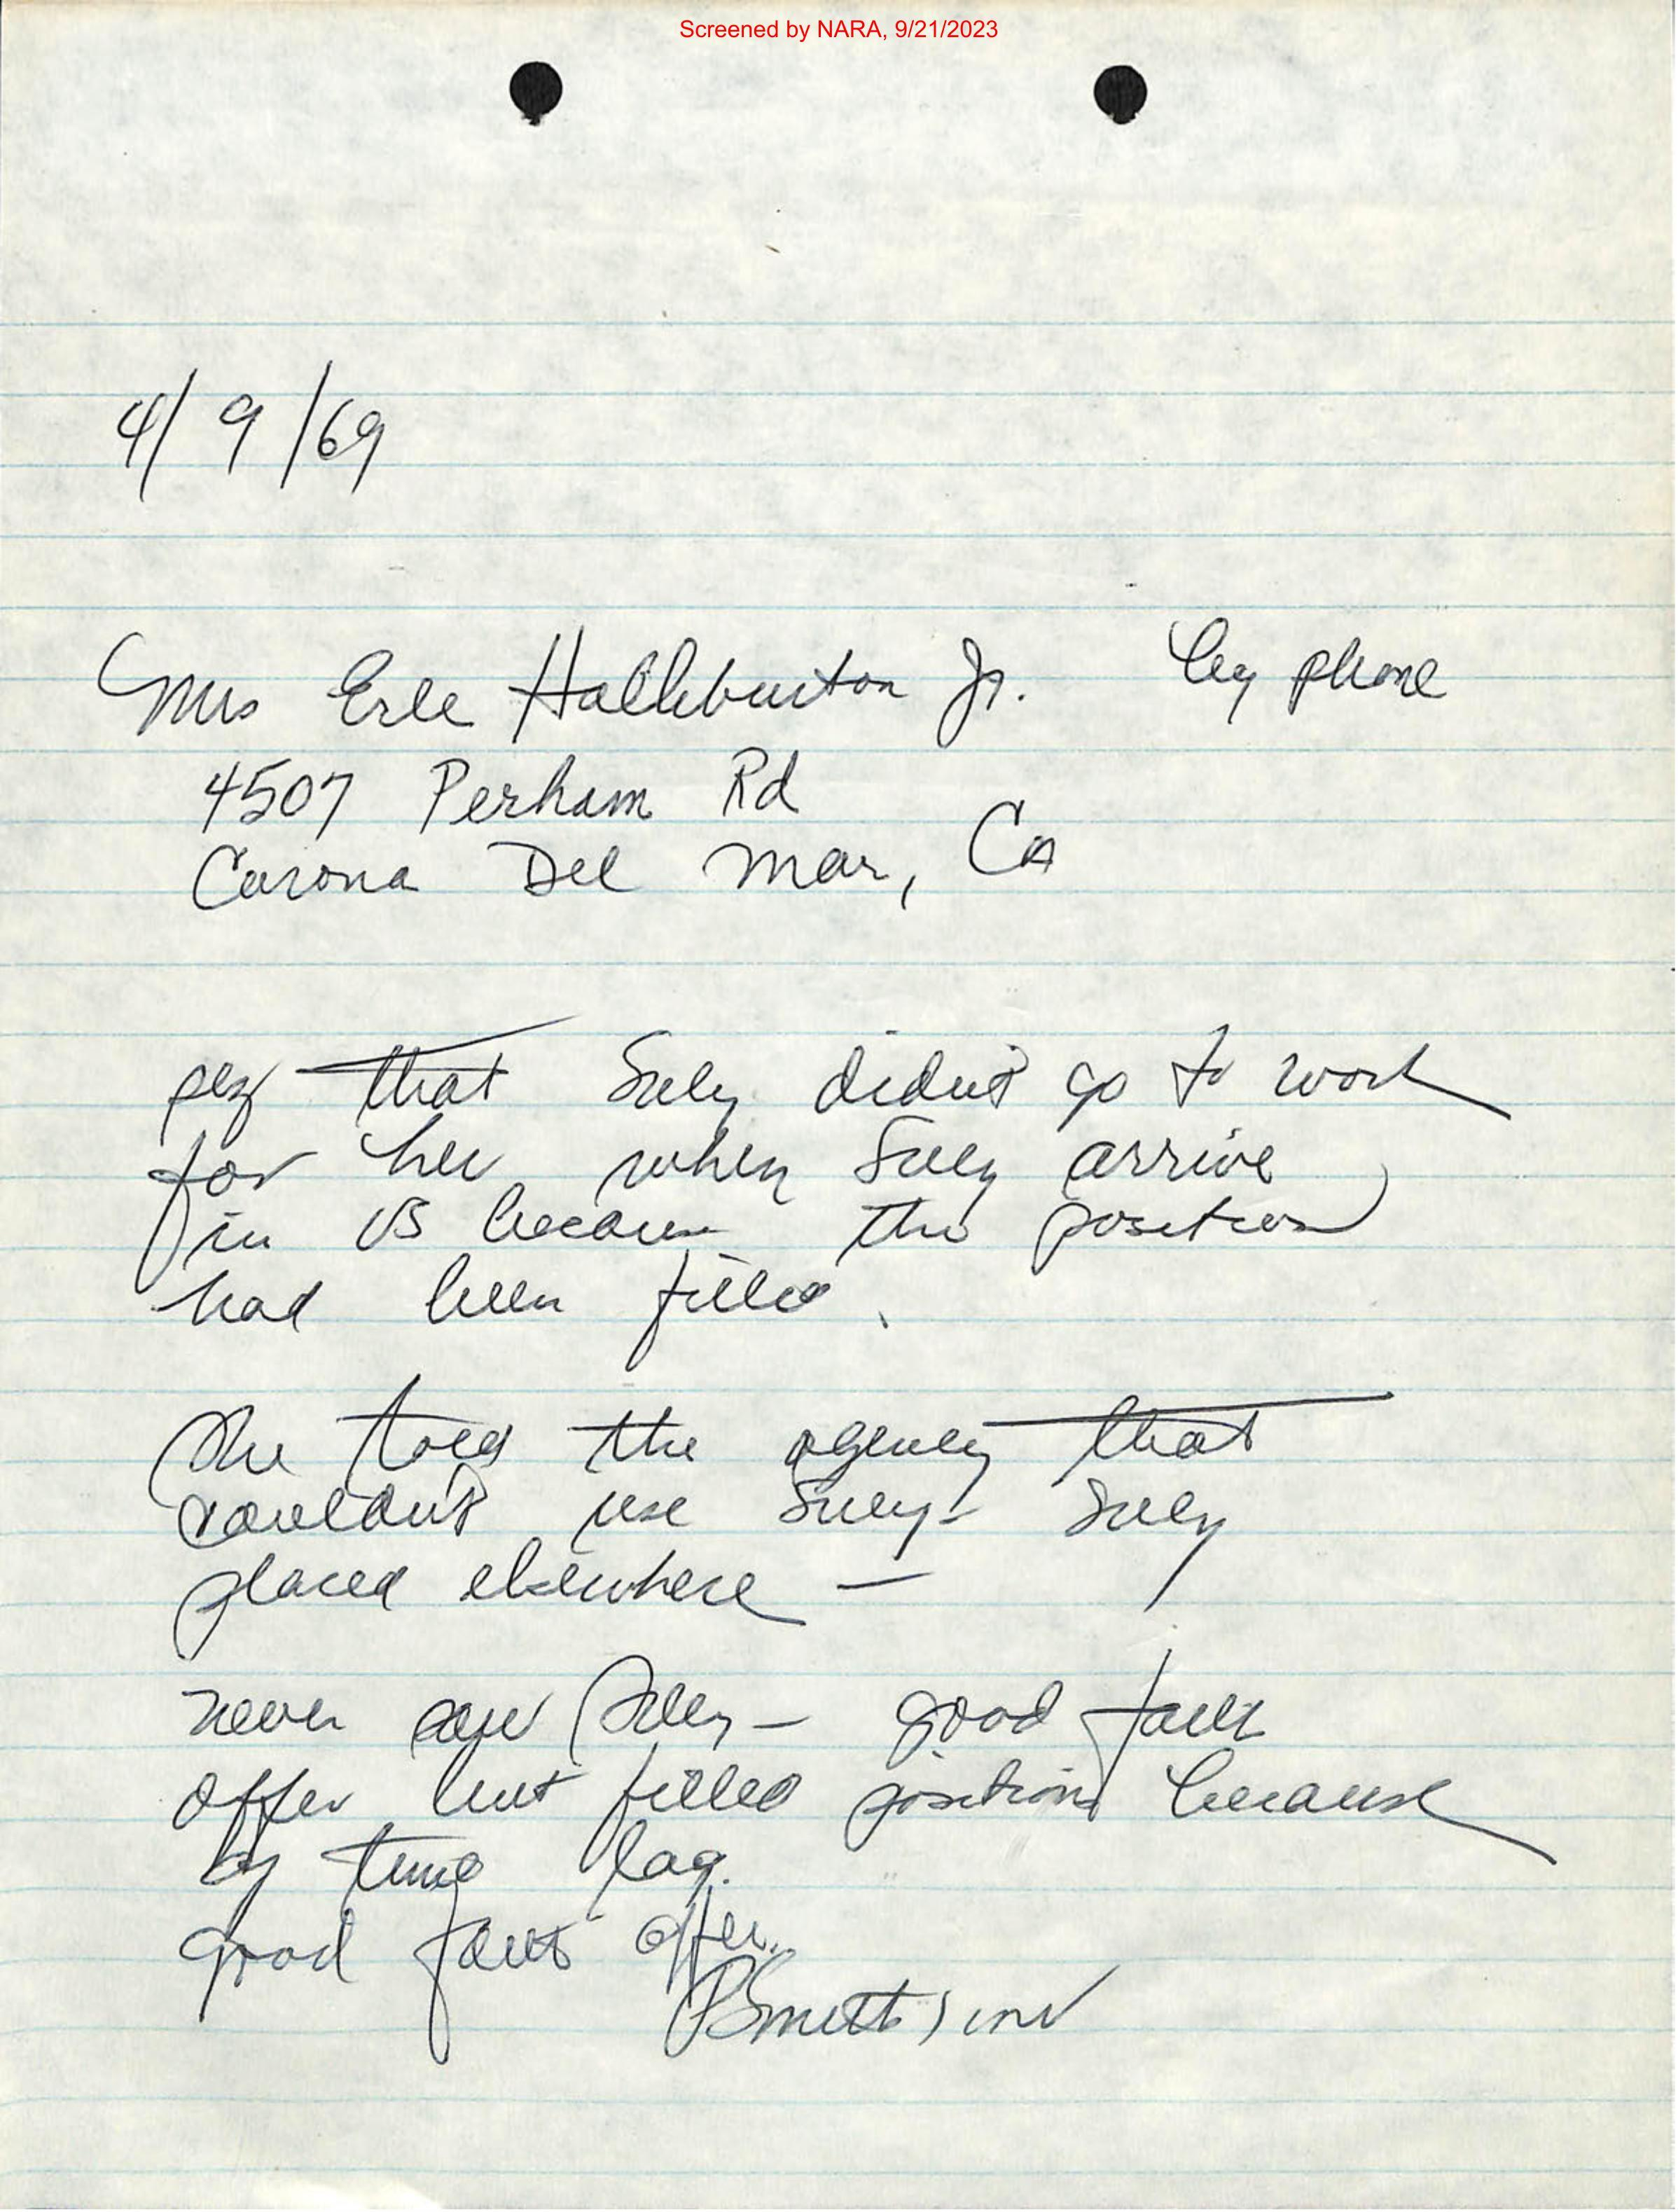 Screened by NARA, 9/21/2023
4/9/69
Mrs Erle Halliburton Jr. by phone
4507 Perham Rd
Corona Del Mar, Ca
that didnt go to work
for her when arrive
in US because the position
had been filled.
She told the agency that
couldnt use
placed elsewhere —
never saw — good faith
offer but filled position because
of time lag.
good faith offer.
Smith, inv